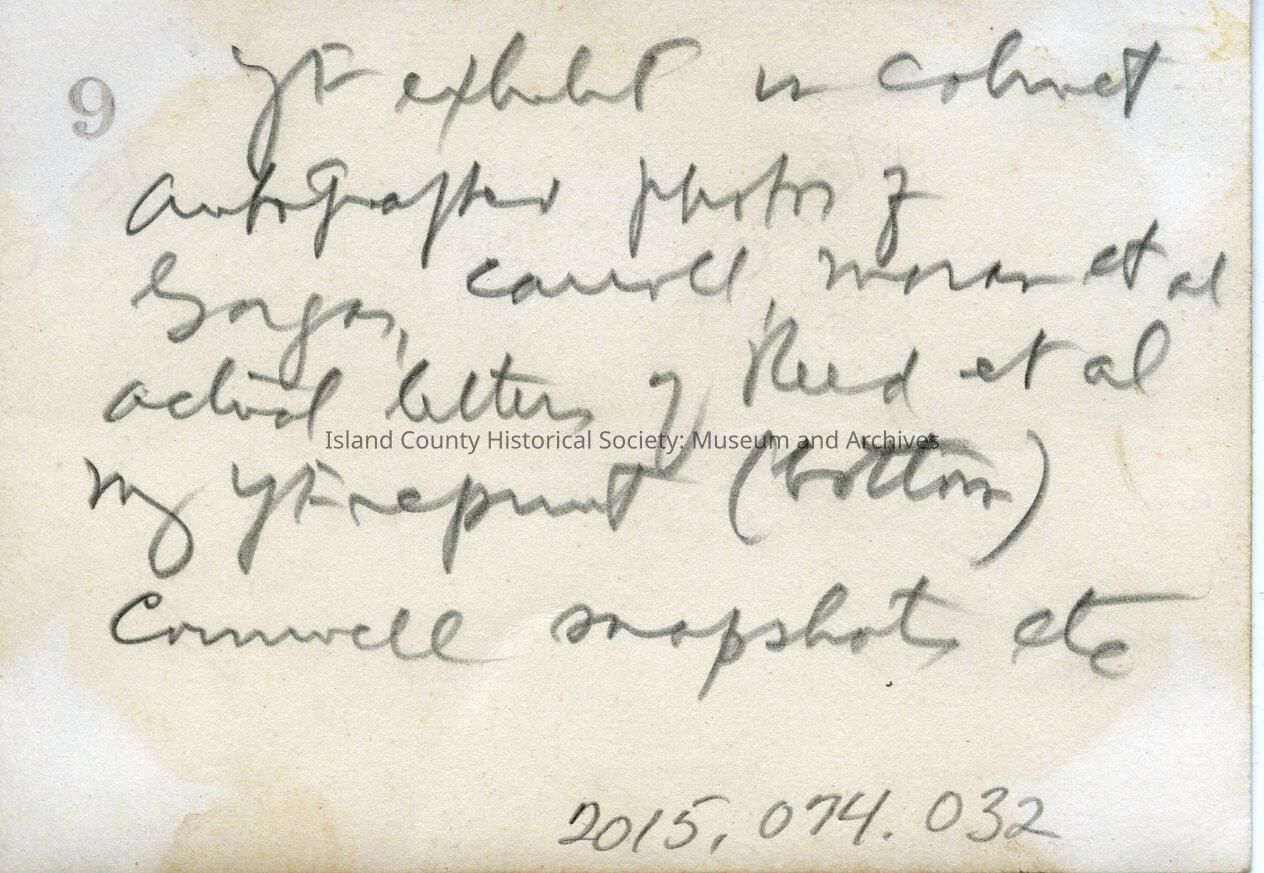 9
YF exhibit in cabinet
autografted photos of
Gorgas, Carroll, Moran et al
actual letters of Reed et al
Island County Historical Society: Museum and Archives
my YF reprint (bottom)
Cornwell snapshots etc
2015.074.032